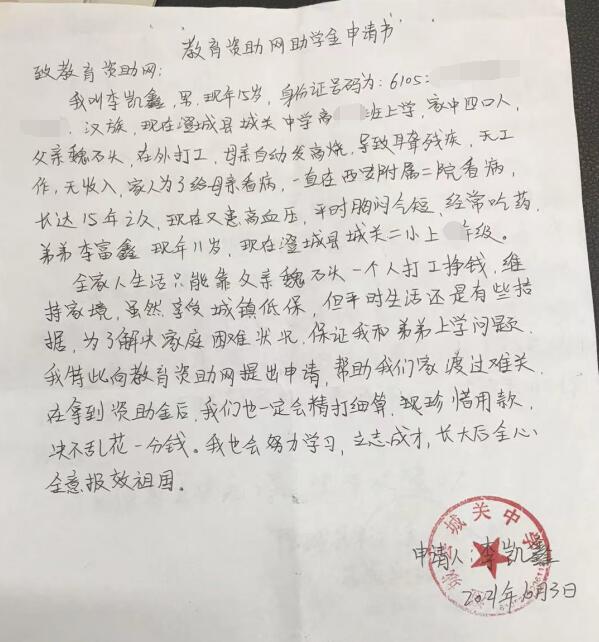 教育资助网助学金申请书
致教育资助网:
我叫李凯鑫,男,现年15岁,身份证号码为:6105:
、汉族,现在澄城县城关中学高 班上学,家中四口人,
父亲魏石头,在外打工,母亲自幼发高烧,导致耳聋残疾,无工
作,无收入,家人为了给母亲看病,一直在西安附属二院看病,
长达15年之久,现在又患高血压,平时胸闷气短,经常吃药,
弟弟李富鑫 现年11岁,现在澄城县城关二小上 年级。
全家人生活只能靠父亲魏石头一个人打工挣钱,维
持家境,虽然享受城镇低保,但平时生活还是有些拮
据,为了解决家庭困难状况,保证我和弟弟上学问题,
我特此向教育资助网提出申请,帮助我们家渡过难关,
在拿到资助金后,我们也一定会精打细算,现珍惜用款,
决不乱花一分钱。我也会努力学习,立志成才,长大后全心
全意报效祖国。
城关中学
申请人:李凯鑫
2021年10月3日